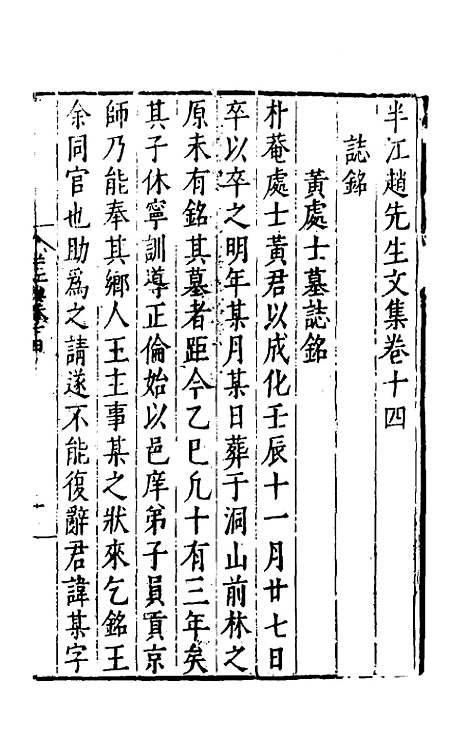 半江趙先生文集卷十四
誌銘
黃處士墓誌銘
朴菴處士黃君以成化壬辰十一月廿七日
卒以卒之明年某月某日葬于洞山前林之
原未有銘其墓者距今乙巳凡十有三年矣
其子休寧訓導正倫始以邑庠弟子員貢京
師乃能奉其鄉人王主事某之狀來乞銘王
余同官也助爲之請遂不能復辭君諱某字